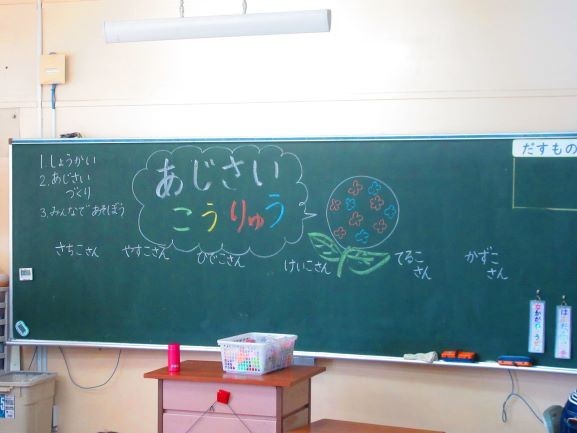 1.しょうかい
2.あじさい
づくり
3.みんなであそぼう
あじさい
こうりゅう
だすもの
さちこさん
やすこさん
ひでこさん
けいこさん
てるこ
さん
かずこ
さん